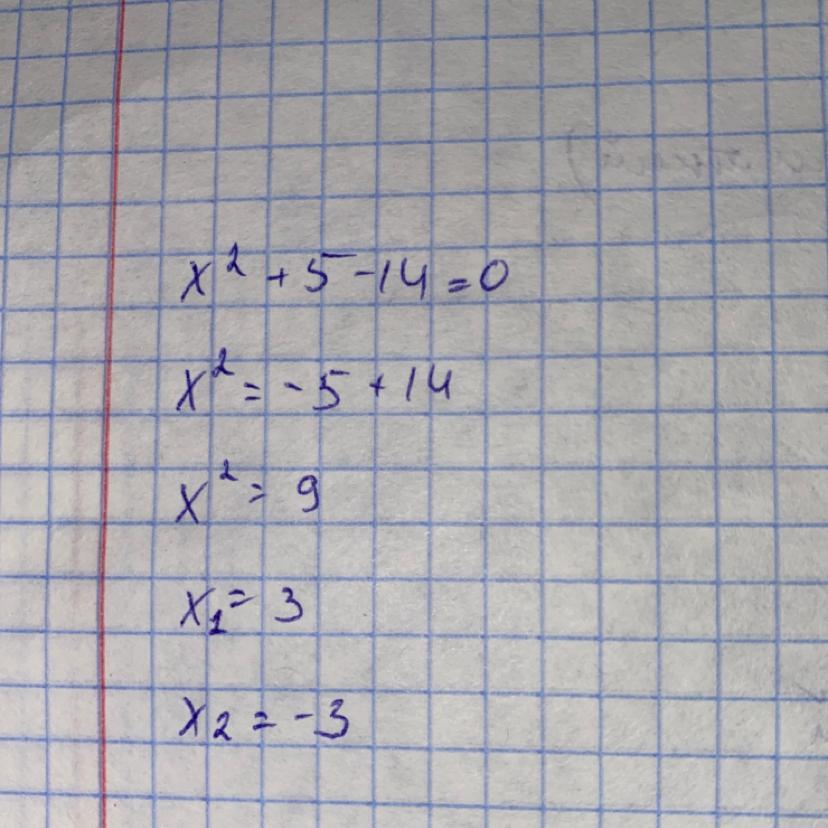 x² + 5 - 14 = 0
x² = -5 + 14
x² = 9
x₁ = 3
x₂ = -3